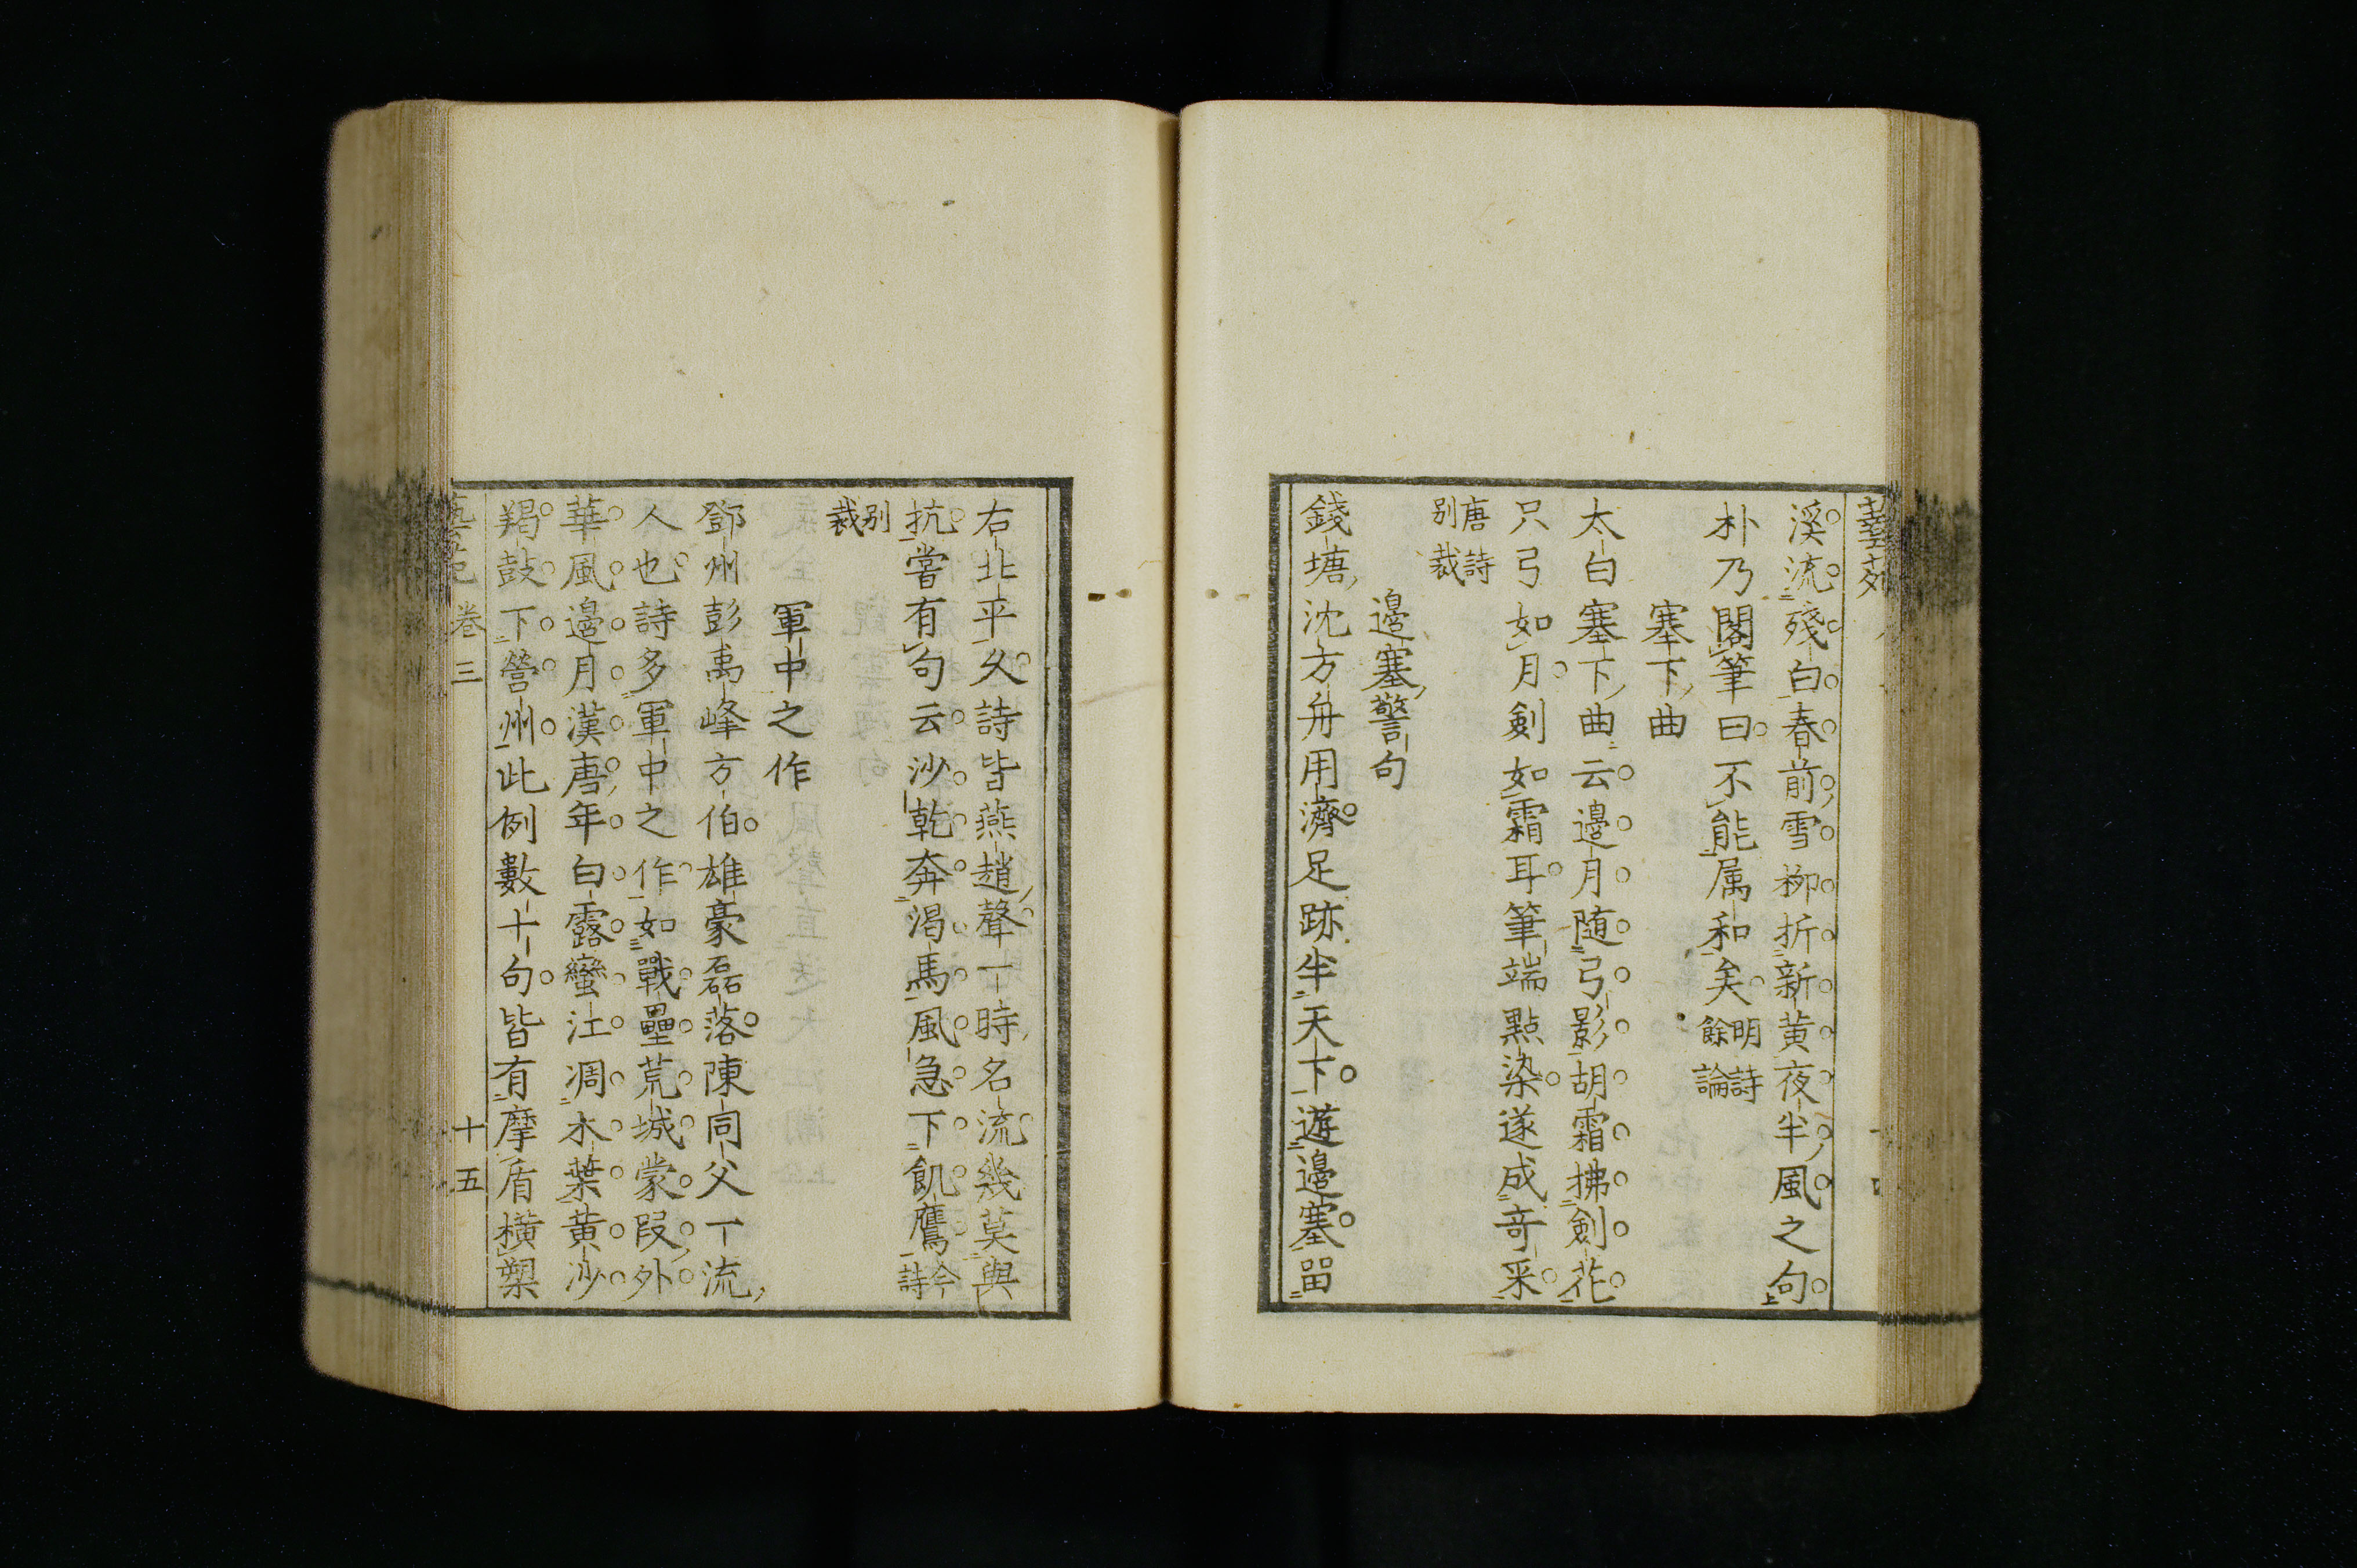 溪流殘白春前雪柳折新黄夜半風之句
朴乃閣筆曰不能属和矣明詩餘論
塞下曲
太白塞下曲云邊月随弓影胡霜拂劍花
只弓如月劍如霜耳筆端點染遂成奇采
唐詩別裁
邊塞警句
錢塘沈方舟用濟足跡半天下遊邊塞留
右北平久詩皆燕趙聲一時名流幾莫與
抗嘗有句云沙乾奔渴馬風急下飢鷹今詩
别裁
軍中之作
鄧州彭禹峰方伯雄豪磊落陳同父一流
人也詩多軍中之作如戰壘荒城蒙叚外
華風邊月漢唐年白露蠻江凋木葉黄沙
羯鼓下營州此例數十句皆有摩盾橫槊
藝苑 卷三 十五